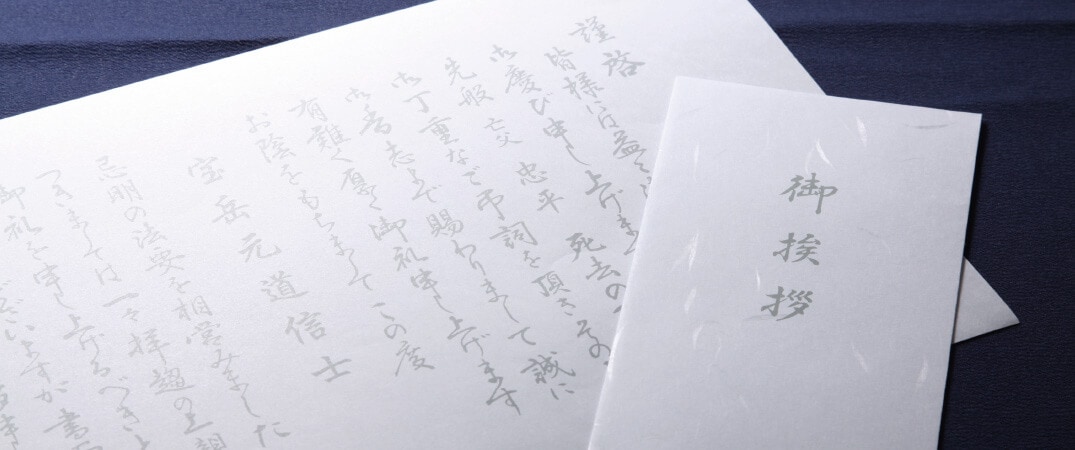 謹啓
皆様には益々
御慶び申し上げま
先般 亡父 忠平 死去の
御丁重なご弔詞を頂きその
御香志まで賜わりまして 誠に
有難く厚く御礼申し上げます
お陰をもちまして この度
宝岳元道信士
忌明の法要を相営みました
つきましては 一々拝趨の上親
御礼を申し上げるべき
ございますが 書
御挨拶